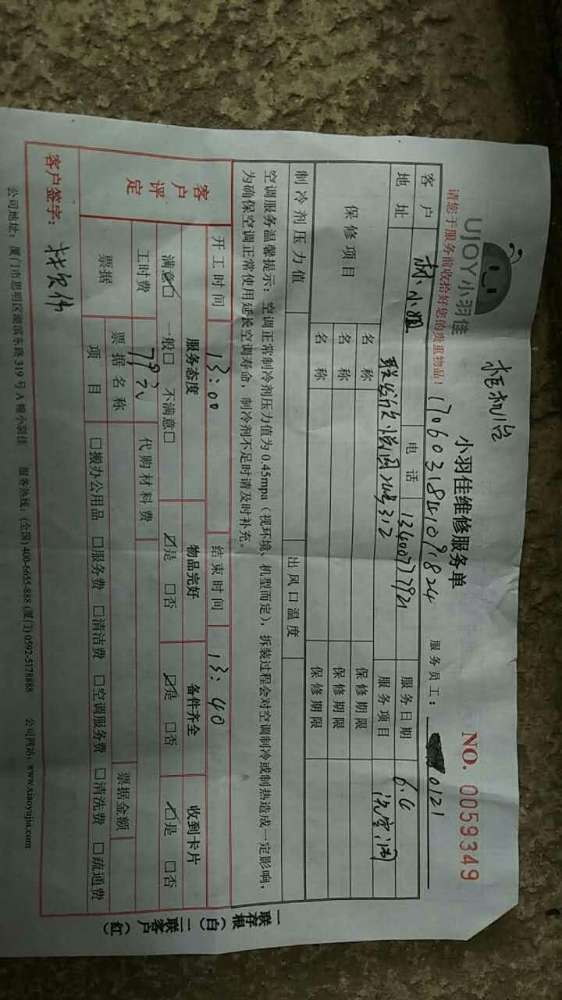 UJOY小羽佳
小羽佳维修服务单
NO. 0059349
请您于服务前收拾好您的贵重物品!
服务员工: 0121
客户 林小姐 电话 13400777921 服务日期 6.4
地址 服务项目 洗空调
保修项目 名称 保修期限
名称 保修期限
名称 保修期限
制冷剂压力值 出风口温度
空调服务温馨提示: 空调正常制冷剂压力值为 0.45mpa (视环境、机型而定), 拆装过程会对空调制冷或制热造成一定影响,
为确保空调正常使用延长空调寿命, 制冷剂不足时请及时补充。
开工时间 13:00 结束时间 13:40
客户评定 服务态度 物品完好 备件齐全 收到卡片
满意☑ 一般□ 不满意□ ☑是 □否 ☑是 □否 ☑是 □否
工时费 79元 代购材料费
票据 票据名称 票据金额
项目 □搬办公用品 □服务费 □清洁费 □空调服务费 □清洗费 □疏通费
客户签字:
公司地址: 厦门市思明区湖滨东路 319 号 A 幢小羽佳 服务热线: (全国) 400-6655-888 (厦门) 0592-5178888 公司网站: www.xiaoyujia.com
一联存根(白) 二联客户(红)